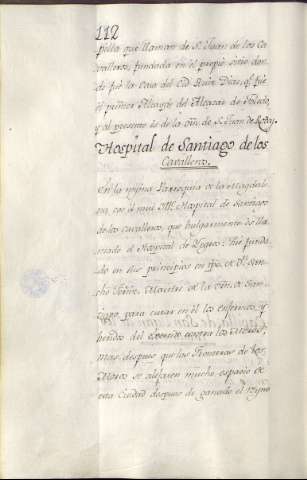 112
pilla que llaman de S. Juan de los Ca-
valleros, fundada en el propio sitio don-
de fue la casa del Cid Ruiz Diaz, q.e fue
el primer Alcayde del Alcazar de Toledo,
y al presente es de la orn. de S. Juan de
Hospital de Santiago de los
Cavalleros.
En la misma Parroquia de la Magdale-
na, cae el mui Ill.e Hospital de Santiago
de los Cavalleros, que bulgarmente es lla-
mado el Hospital de fue funda-
do en sus principios en tpo. de D. San-
cho Maestre de la orn. de San-
tiago, para curar en él los enfermos, y
heridos del Exercito contra los Moros,
mas, despues que las fronteras de los
Moros se alejaron mucho espacio de
esta Ciudad despues de ganado el Reyno